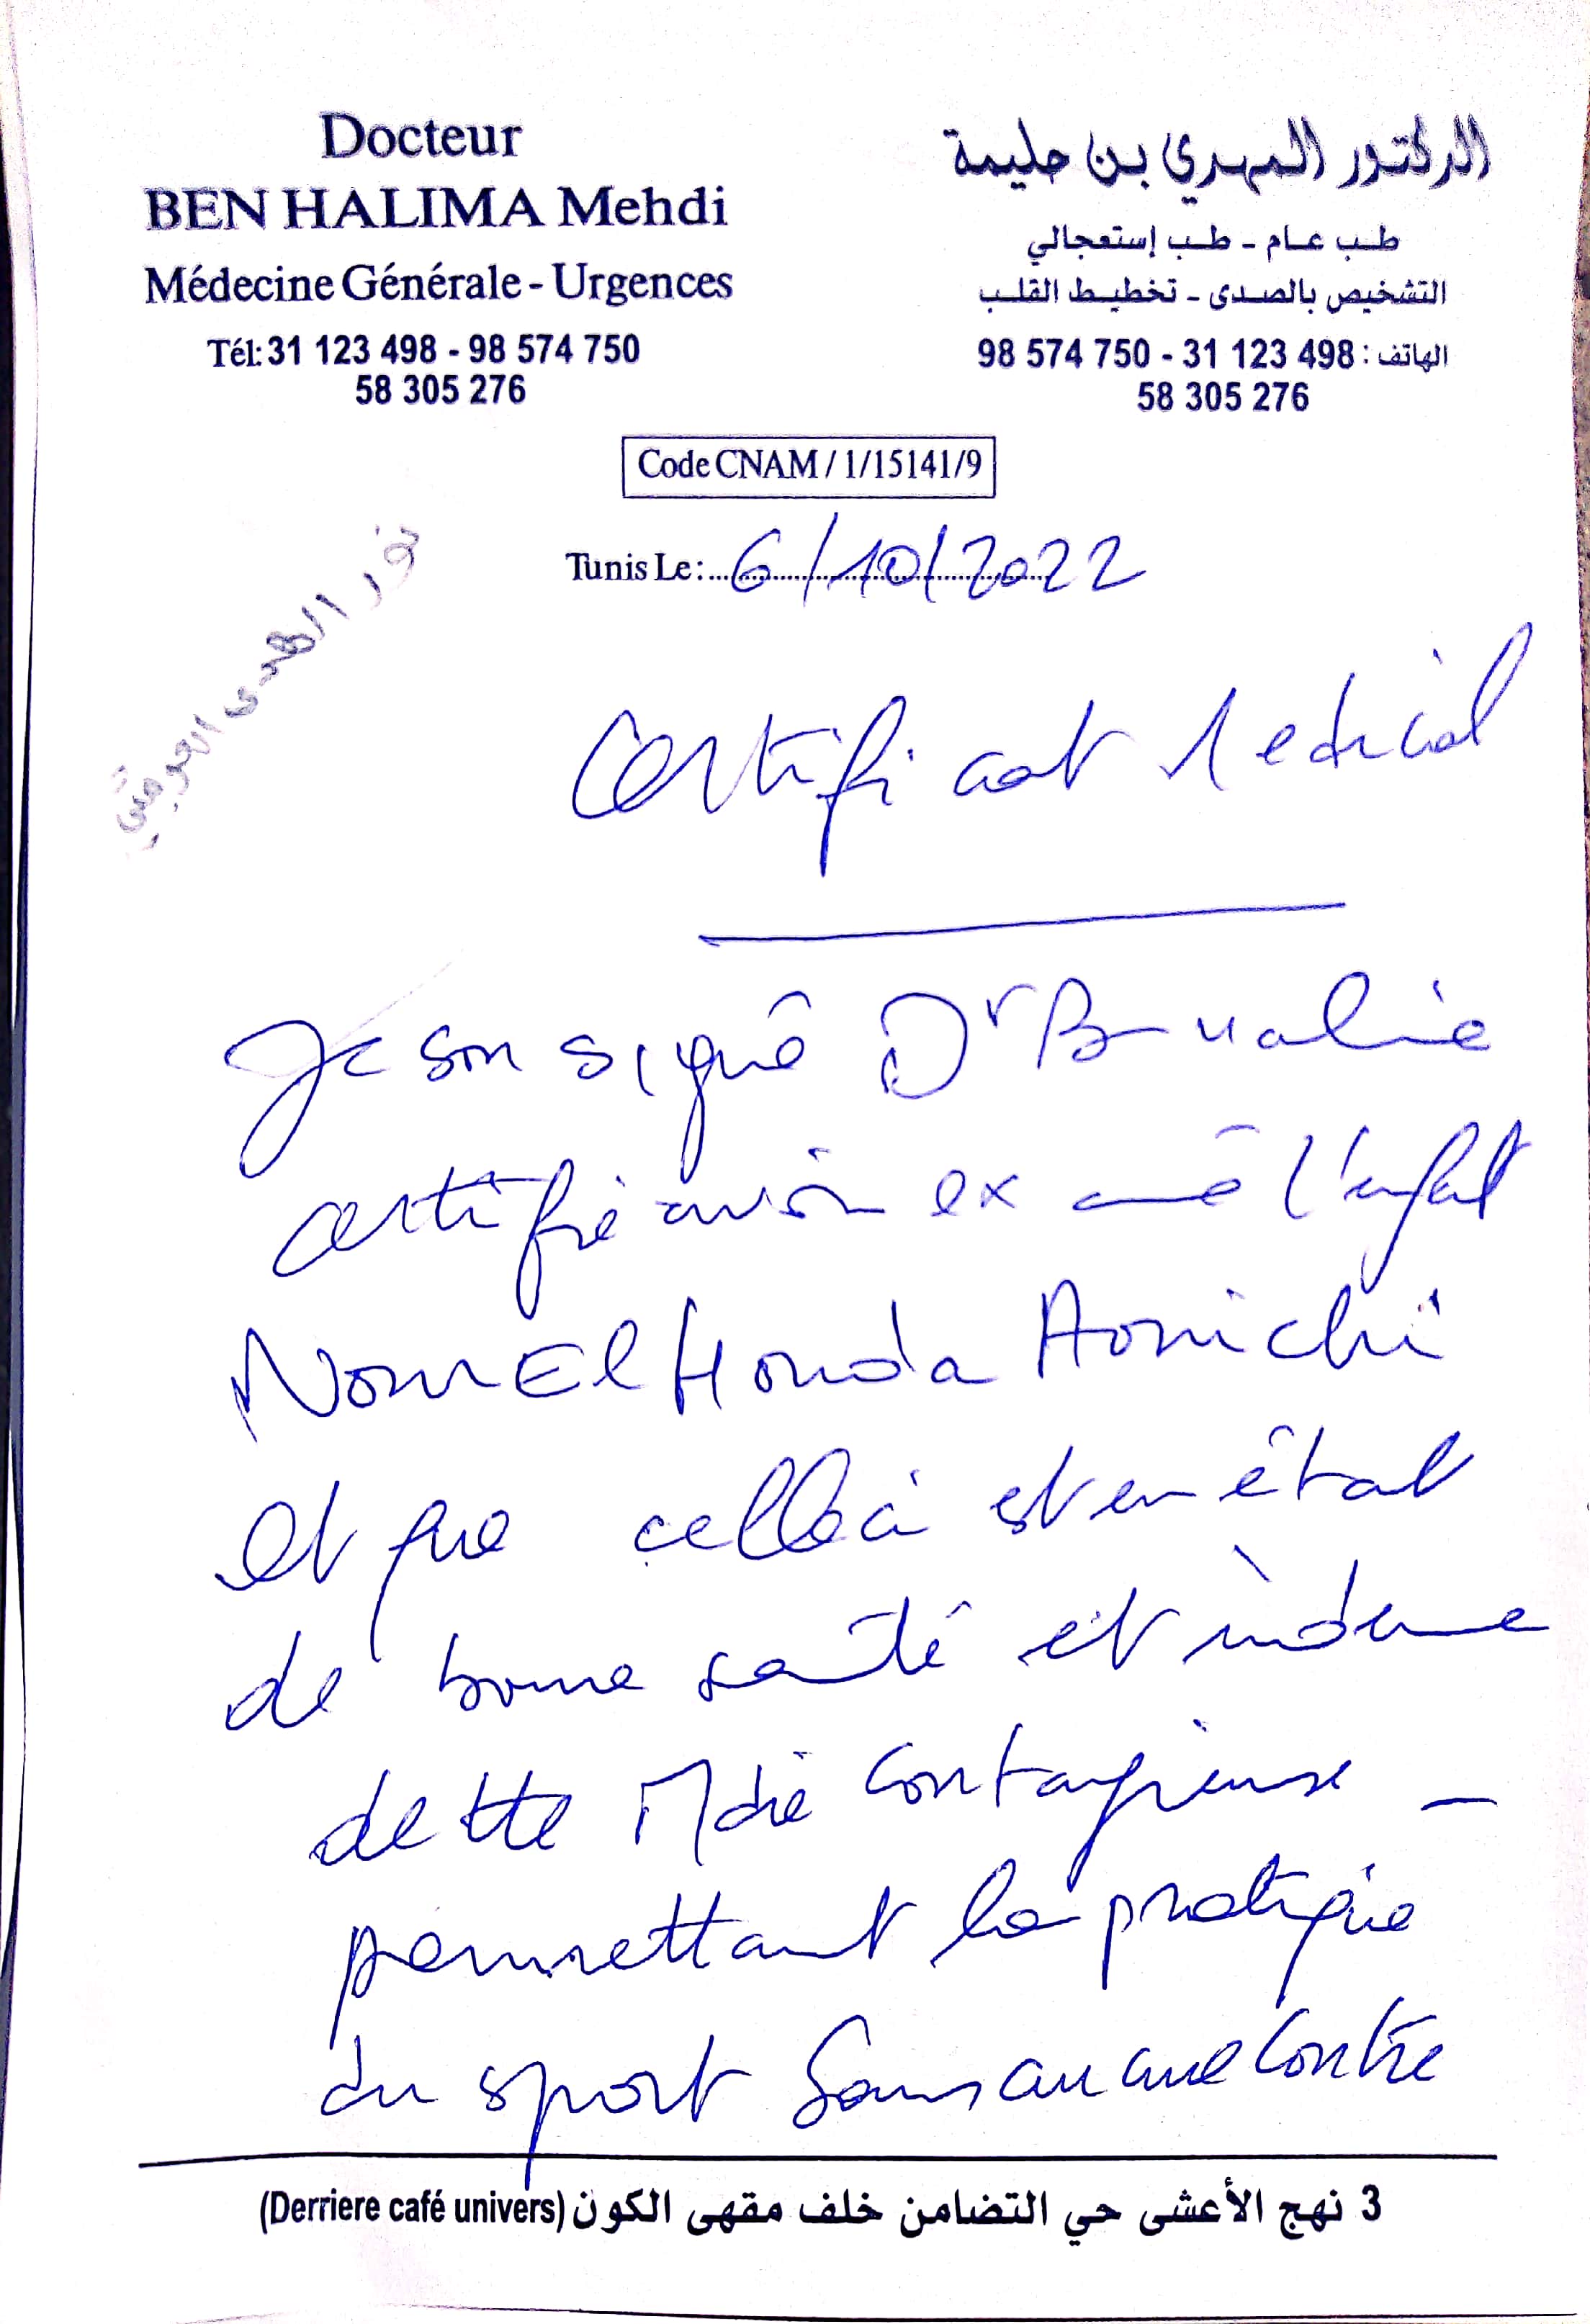 Docteur
BEN HALIMA Mehdi
Médecine Générale - Urgences
Tél: 31 123 498 - 98 574 750
58 305 276
الدكتور المهدي بن حليمة
طب عام - طب إستعجالي
التشخيص بالصدى - تخطيط القلب
الهاتف : 98 574 750 - 31 123 498
58 305 276
Code CNAM / 1/15141/9
Tunis Le : 6/10/2022
نور الهدى
Certificat Medical
Je sousigné Dr Ben Halima
certifié avoir examiné l'enfant
Nour El Houda
et que celle ci est en état
de bonne santé et indemne
de tte Mdie contagieuse _
permettant la pratique
du sport sans aucune contre
3 نهج الأعشى حي التضامن خلف مقهى الكون (Derriere café univers)